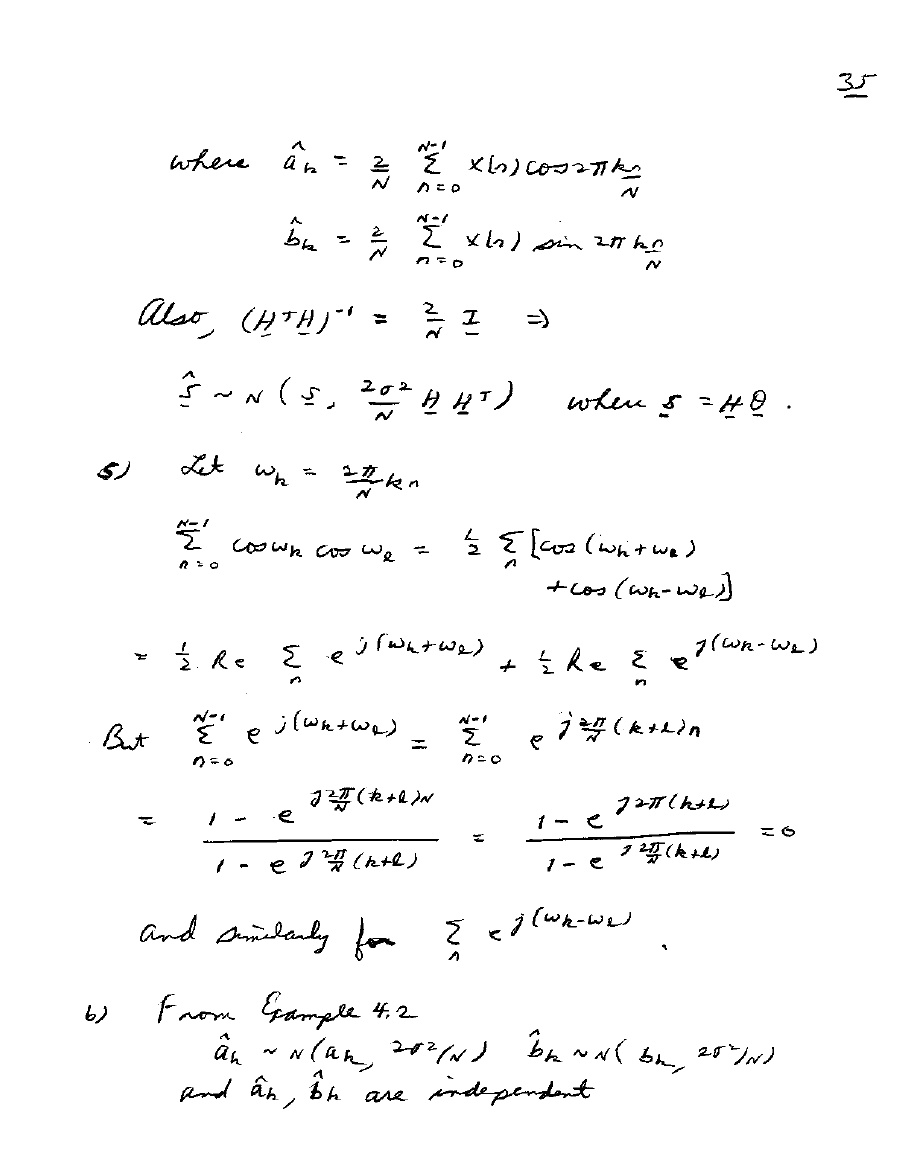 35
where â_k = 2/N Σ_{n=0}^{N-1} x(n) cos 2πkn/N
b̂_k = 2/N Σ_{n=0}^{N-1} x(n) sin 2πkn/N
Also, (H^T H)^{-1} = 2/N I ⇒
ŝ ~ N(s, 2σ²/N H H^T) where s = Hθ.
5) Let ω_k = 2π/N kn
Σ_{n=0}^{N-1} cos ω_k cos ω_l = 1/2 Σ_n [cos(ω_k+ω_l)
+cos(ω_k-ω_l)]
= 1/2 Re Σ_n e^{j(ω_k+ω_l)} + 1/2 Re Σ_n e^{j(ω_k-ω_l)}
But Σ_{n=0}^{N-1} e^{j(ω_k+ω_l)} = Σ_{n=0}^{N-1} e^{j 2π/N (k+l)n}
= (1 - e^{j 2π/N (k+l)N}) / (1 - e^{j 2π/N (k+l)}) = (1 - e^{j2π(k+l)}) / (1 - e^{j 2π/N (k+l)}) = 0
and similarly for Σ_n e^{j(ω_k-ω_l)}.
6) From Example 4.2
â_k ~ N(a_k, 2σ²/N) b̂_k ~ N(b_k, 2σ²/N)
and â_k, b̂_k are independent